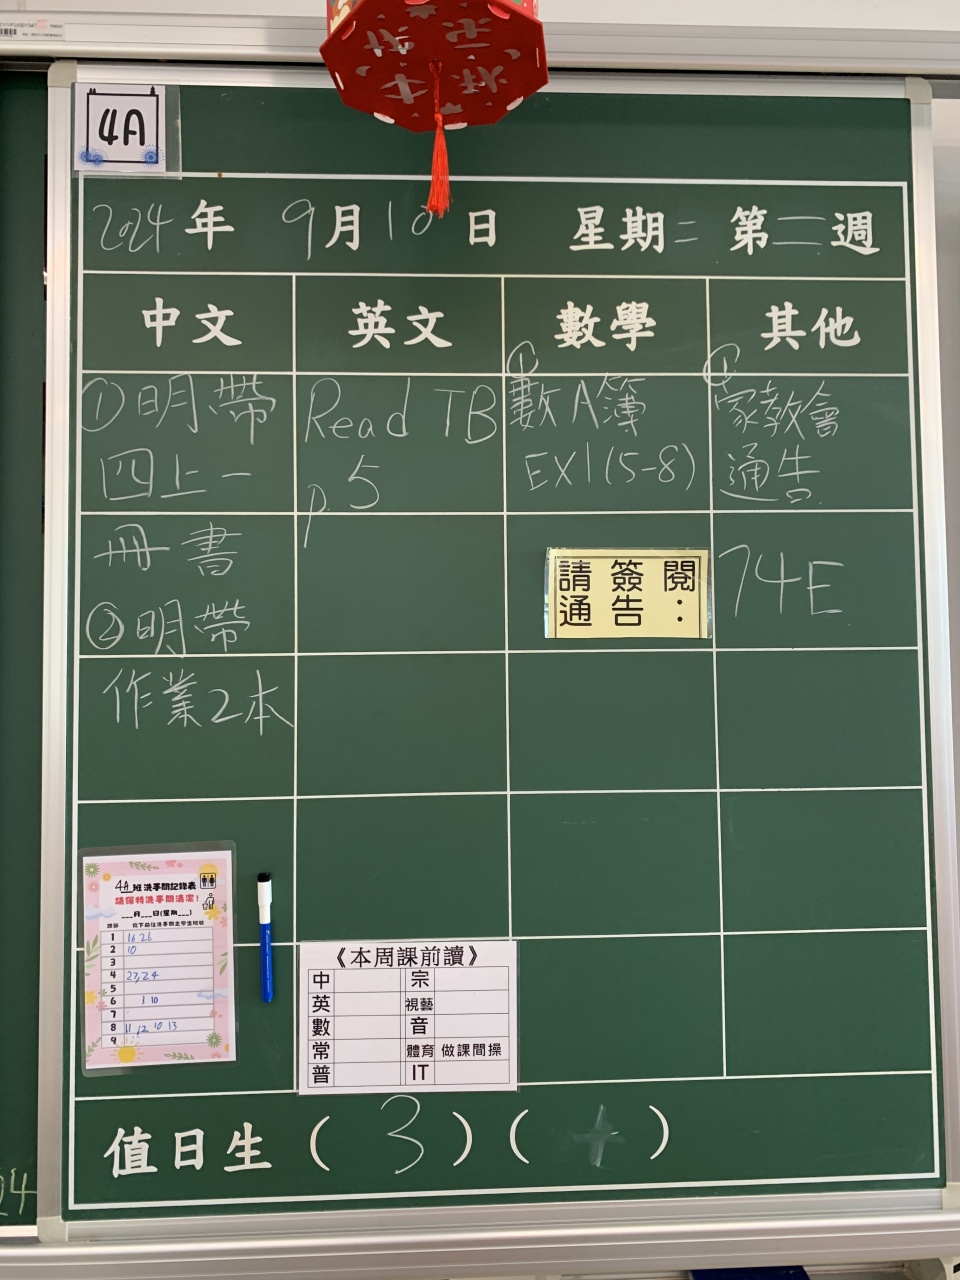 4A
2024年 9月10日 星期二 第二週
中文 英文 數學 其他
①明帶
四上一
冊書
②明帶
作業2本
Read TB
p.5
①
數A簿
EX1(5-8)
①
家教會
通告
74E
請簽閱
通告：
4A班洗手間記錄表
請保持洗手間清潔!
___月___日(星期___)
課節 在下節往洗手間之學生班號
1 16 26
2 10
3
4 23,24
5
6 3 10
7
8 11 12 10 13
9
《本周課前讀》
中 宗
英 視藝
數 音
常 體育 做課間操
普 IT
值日生（3）（4）
24